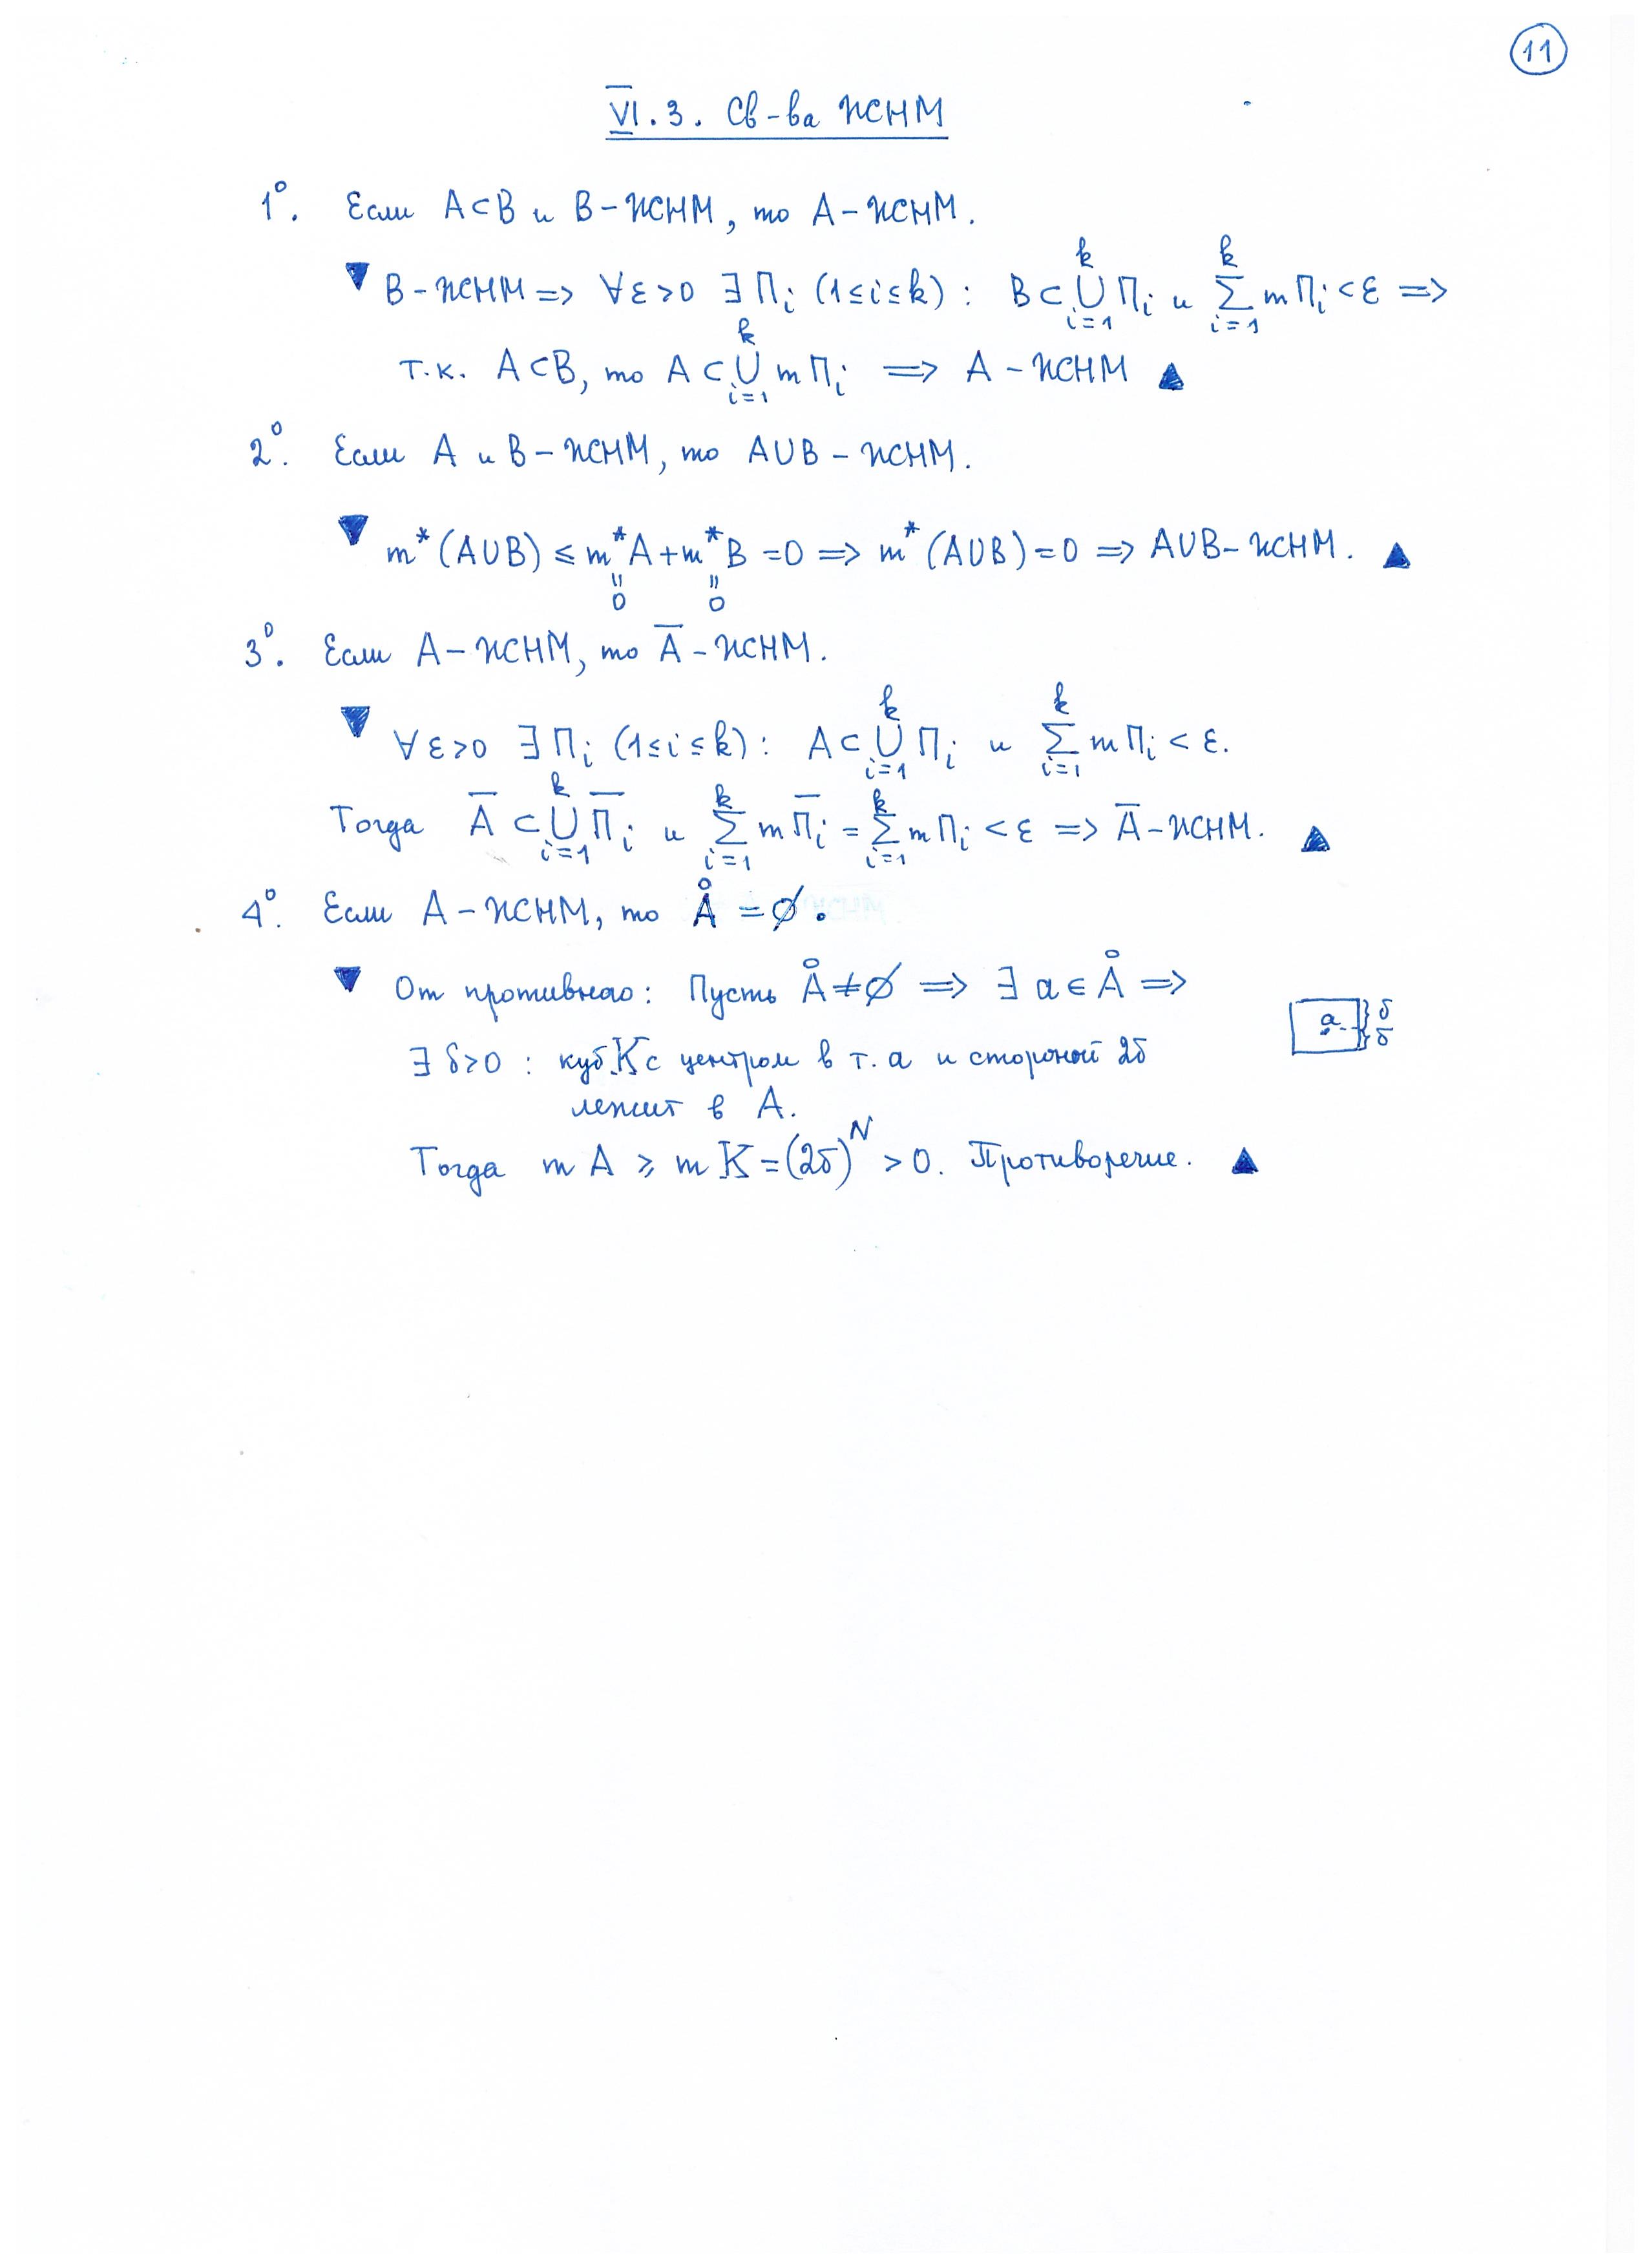 11
VI.3. Св-ва ИСНМ
1°. Если A⊂B и B – ИСНМ, то A – ИСНМ.
▼ B – ИСНМ => ∀ε>0 ∃Пᵢ (1≤i≤k): B⊂⋃_{i=1}^{k} Пᵢ и ∑_{i=1}^{k} mПᵢ < ε =>
т.к. A⊂B, то A⊂⋃_{i=1}^{k} mПᵢ => A – ИСНМ ▲
2°. Если A и B – ИСНМ, то A∪B – ИСНМ.
▼ m*(A∪B) ≤ m*A + m*B = 0 => m*(A∪B) = 0 => A∪B – ИСНМ. ▲
‖ ‖
0 0
3°. Если A – ИСНМ, то A̅ – ИСНМ.
▼ ∀ε>0 ∃Пᵢ (1≤i≤k): A⊂⋃_{i=1}^{k} Пᵢ и ∑_{i=1}^{k} mПᵢ < ε.
Тогда A̅ ⊂ ⋃_{i=1}^{k} П̅ᵢ и ∑_{i=1}^{k} mП̅ᵢ = ∑_{i=1}^{k} mПᵢ < ε => A̅ – ИСНМ. ▲
4°. Если A – ИСНМ, то Å = ∅.
▼ От противного: Пусть Å ≠ ∅ => ∃ a ∈ Å =>
a δ δ
∃ δ>0 : куб K с центром в т. a и стороной 2δ
лежит в A.
Тогда mA ≥ mK = (2δ)^N > 0. Противоречие. ▲